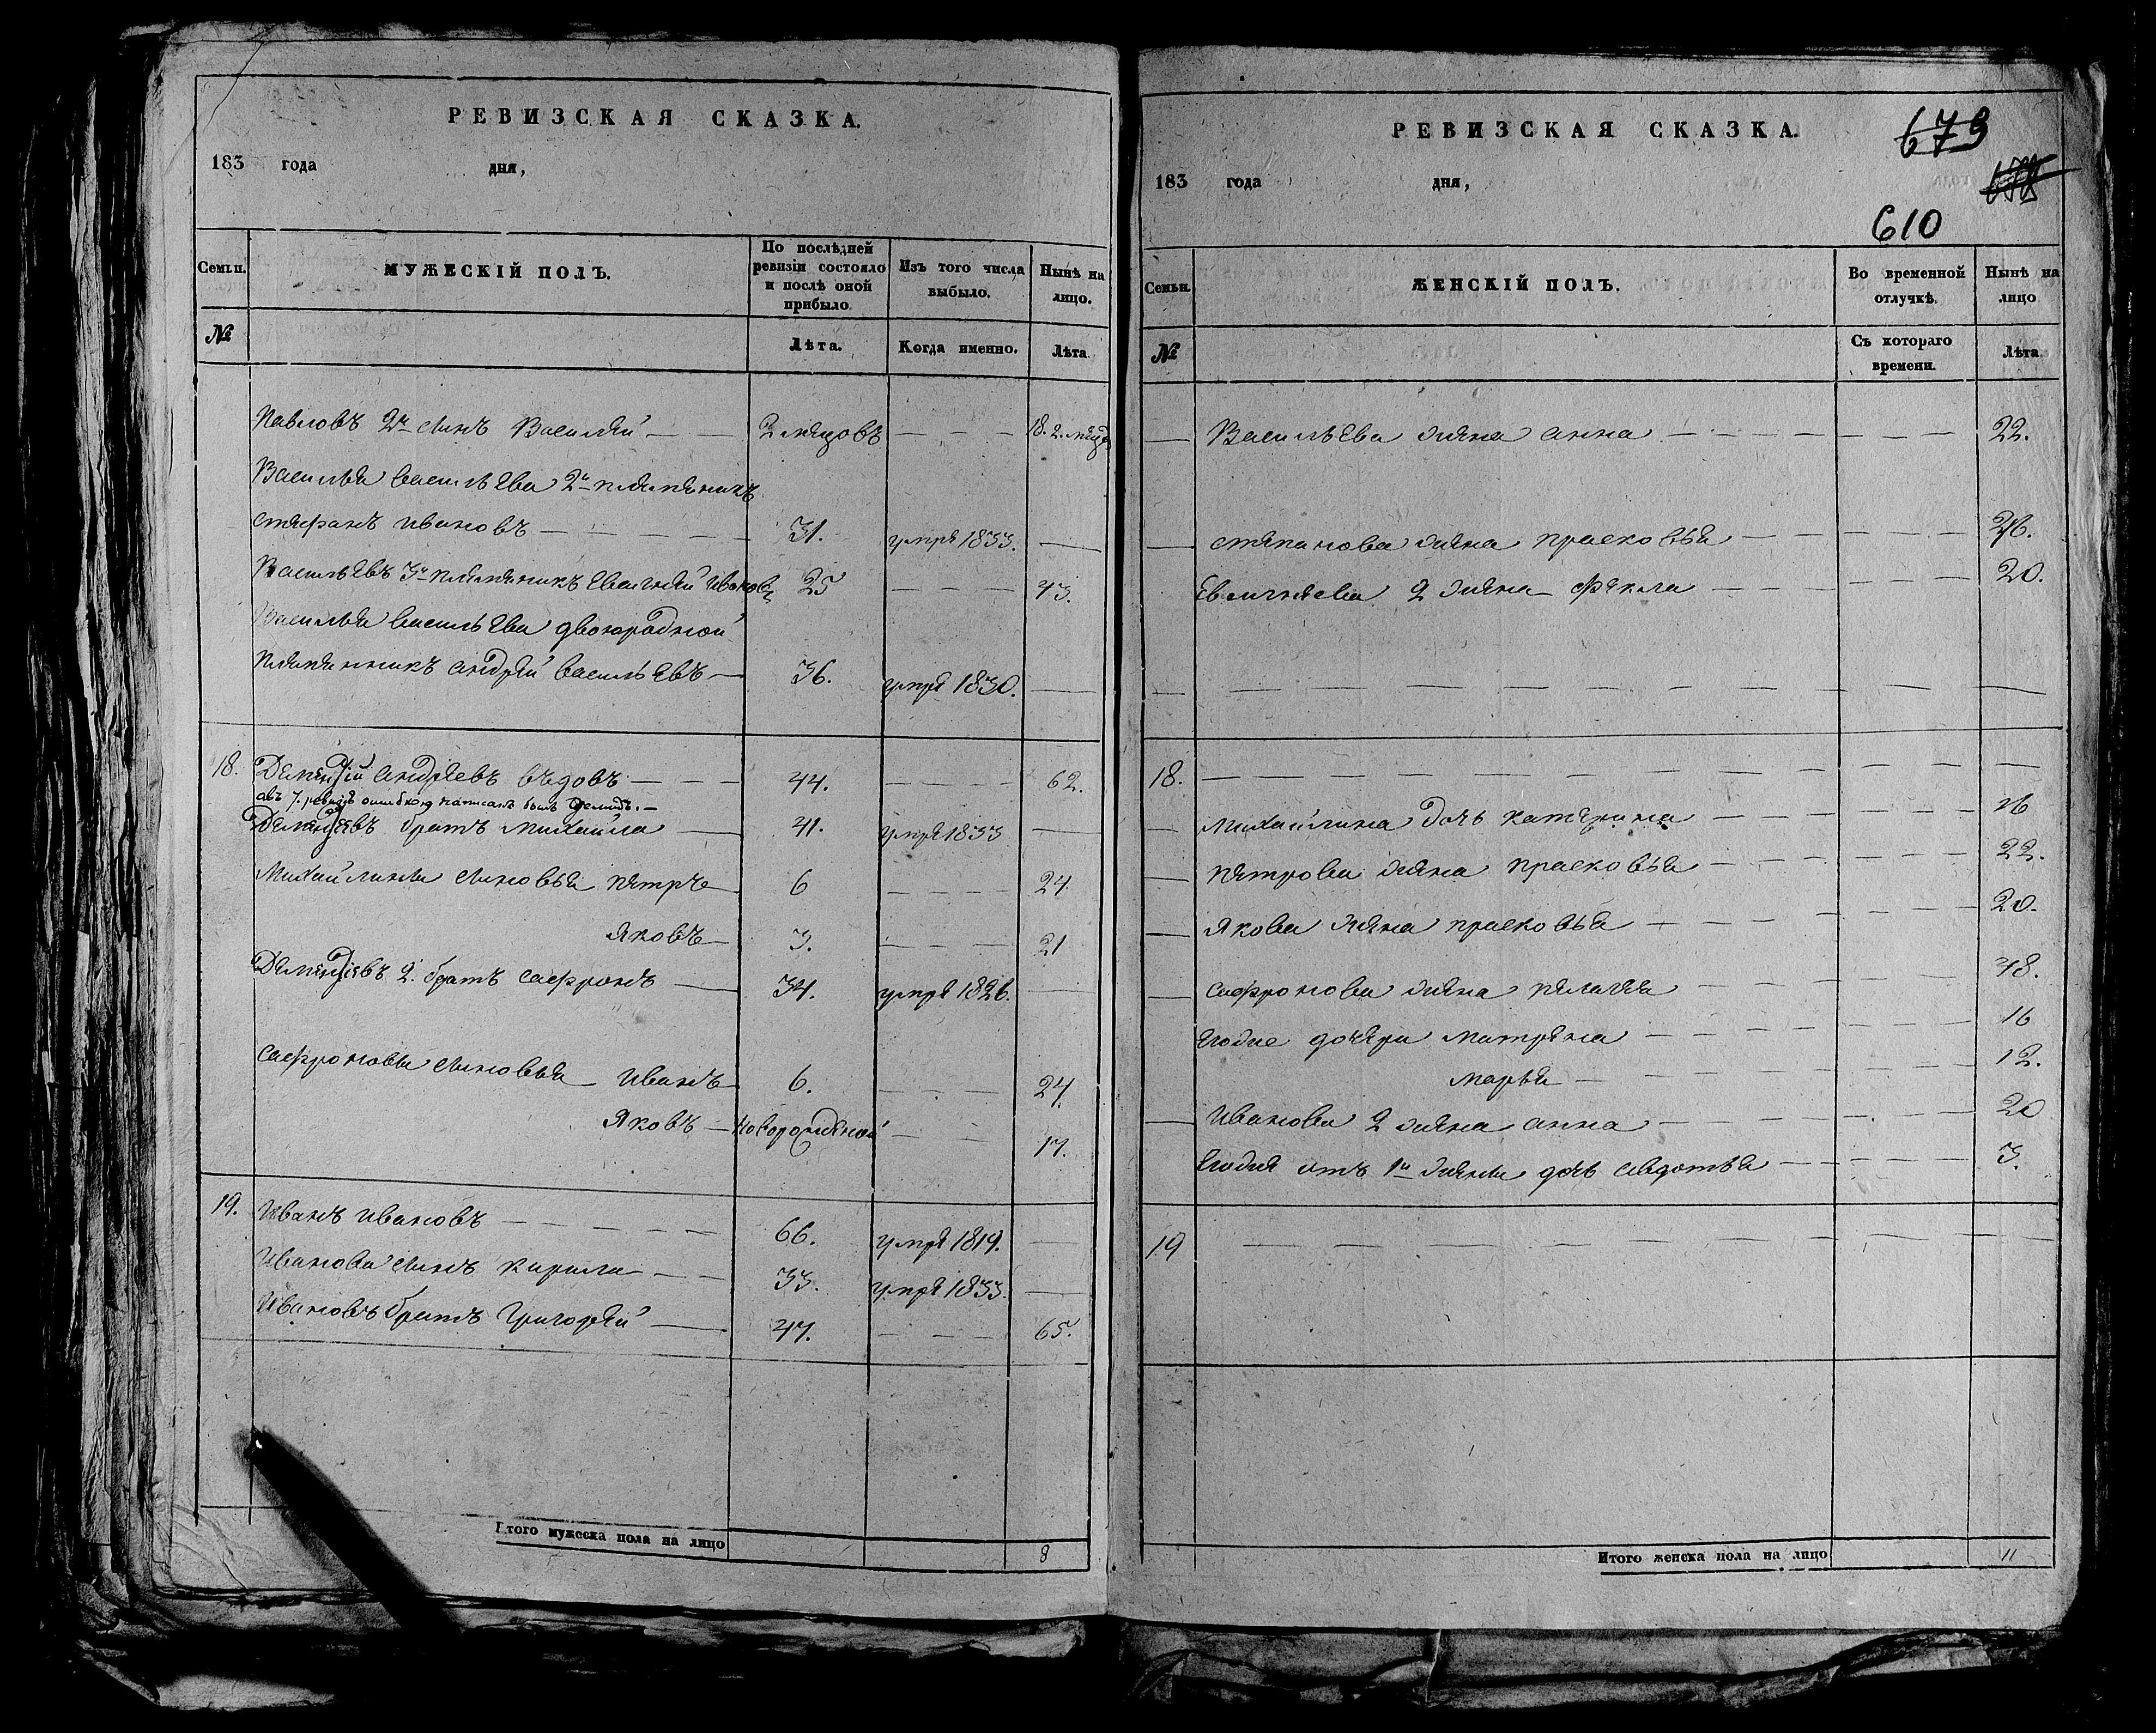 РЕВИЗСКАЯ СКАЗКА.
183 года дня,
Семьи. МУЖЕСКІЙ ПОЛЪ. По послѣдней ревизіи состояло и послѣ оной прибыло. Изъ того числа выбыло. Нынѣ на лицо.
№ Лѣта. Когда именно. Лѣта.
Павловъ 2й сынъ Василей 2 мѣсцовъ 18. 2. мѣсц
Василья васильева 2й племяникъ
степанъ ивановъ 31. умре 1833.
Васильевъ 3й племяникъ Евлигней ивановъ 25 43.
Василья васильева двоюродной
племянникъ андрей васильевъ 36. умре 1830.
18. Дементій андреевъ вѣдовъ 44. 62.
а въ 7. ревизіе ошибкою написанъ былъ Демидъ.
Дементіевъ братъ михайла 41. умре 1833
Михайлины сыновья петръ 6 24
яковъ 3. 21
Дементіевъ 2. братъ сафронъ 34. умре 1826.
сафроновы сыновья иванъ 6. 24.
яковъ новорожденой 17.
19. Иванъ ивановъ 66. умре 1819.
Иванова сынъ кирила 33. умре 1833.
Ивановъ братъ григорей 47. 65.
Итого мужеска пола на лицо 8
РЕВИЗСКАЯ СКАЗКА. 679
183 года дня,
610
Семьи. ЖЕНСКІЙ ПОЛЪ. Во временной отлучкѣ. Нынѣ на лицо
№ Съ котораго времени. Лѣта.
Васильева жена анна 22.
степанова жена прасковья 46.
Евлигнеева 2 жена фекла 20.
18.
михайлина дочь катерина 16
петрова жена прасковья 22.
якова жена прасковья 20.
сафронова жена пелагея 48.
Егоже дочери матрена 16
марья 12.
Иванова 2 жена анна 20
Егожя отъ 1й жены дочь авдотья 3.
19
Итого женска пола на лицо 11